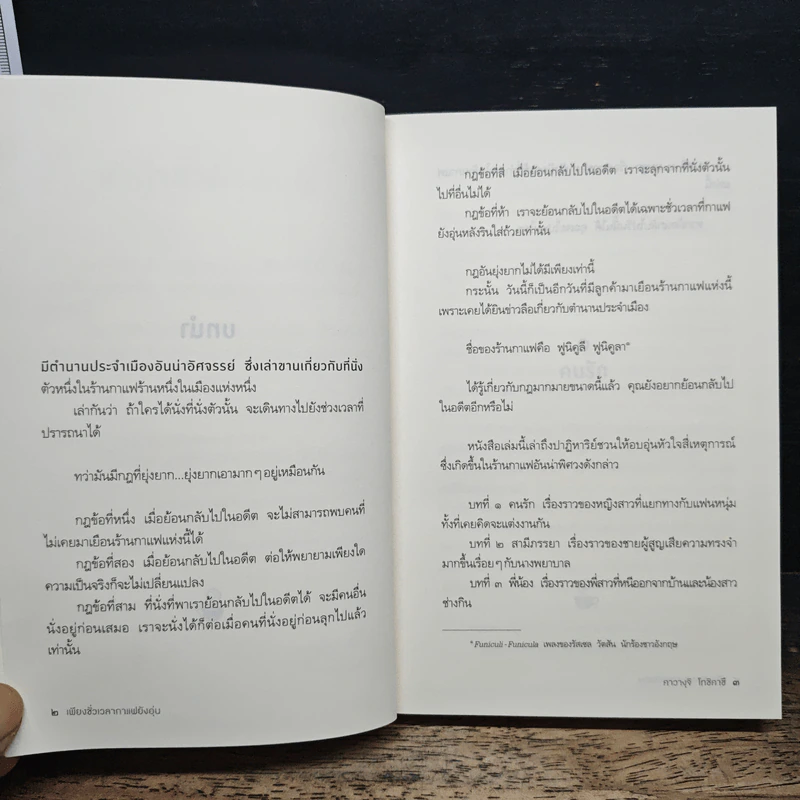 มีตำนานประจำเมืองอันน่าอัศจรรย์ ซึ่งเล่าขานเกี่ยวกับที่นั่ง
ตัวหนึ่งในร้านกาแฟร้านหนึ่งในเมืองแห่งหนึ่ง
เล่ากันว่า ถ้าใครได้นั่งที่นั่งตัวนั้น จะเดินทางไปยังช่วงเวลาที่
ปรารถนาได้
ทว่ามันมีกฎที่ยุ่งยาก...ยุ่งยากเอามากๆ อยู่เหมือนกัน
กฎข้อที่หนึ่ง เมื่อย้อนกลับไปในอดีต จะไม่สามารถพบคนที่
ไม่เคยมาเยือนร้านกาแฟแห่งนี้ได้
กฎข้อที่สอง เมื่อย้อนกลับไปในอดีต ต่อให้พยายามเพียงใด
ความเป็นจริงก็จะไม่เปลี่ยนแปลง
กฎข้อที่สาม ที่นั่งที่พาเราย้อนกลับไปในอดีตได้ จะมีคนอื่น
นั่งอยู่ก่อนเสมอ เราจะนั่งได้ก็ต่อเมื่อคนที่นั่งอยู่ก่อนลุกไปแล้ว
เท่านั้น
๒ เพียงชั่วเวลากาแฟยังอุ่น
กฎข้อที่สี่ เมื่อย้อนกลับไปในอดีต เราจะลุกจากที่นั่งตัวนั้น
ไปที่อื่นไม่ได้
กฎข้อที่ห้า เราจะย้อนกลับไปในอดีตได้เฉพาะชั่วเวลาที่กาแฟ
ยังอุ่นหลังรินใส่ถ้วยเท่านั้น
กฎอันยุ่งยากไม่ได้มีเพียงเท่านี้
กระนั้น วันนี้ก็เป็นอีกวันที่มีลูกค้ามาเยือนร้านกาแฟแห่งนี้
เพราะเคยได้ยินข่าวลือเกี่ยวกับตำนานประจำเมือง
ชื่อของร้านกาแฟคือ ฟูนิคูลี ฟูนิคูลา*
ได้รู้เกี่ยวกับกฎมากมายขนาดนี้แล้ว คุณยังอยากย้อนกลับไป
ในอดีตอีกหรือไม่
หนังสือเล่มนี้เล่าถึงปาฏิหาริย์ชวนให้อบอุ่นหัวใจสี่เหตุการณ์
ซึ่งเกิดขึ้นในร้านกาแฟอันน่าพิศวงดังกล่าว
บทที่ ๑ คนรัก เรื่องราวของหญิงสาวที่แยกทางกับแฟนหนุ่ม
ทั้งที่เคยคิดจะแต่งงานกัน
บทที่ ๒ สามีภรรยา เรื่องราวของชายผู้สูญเสียความทรงจำ
มากขึ้นเรื่อยๆ กับนางพยาบาล
บทที่ ๓ พี่น้อง เรื่องราวของพี่สาวที่หนีออกจากบ้านและน้องสาว
ช่างกิน
*Funiculi-Funicula เพลงของรัสเซล วัตสัน นักร้องชาวอังกฤษ
คาวางุจิ โทชิคาซึ ๓